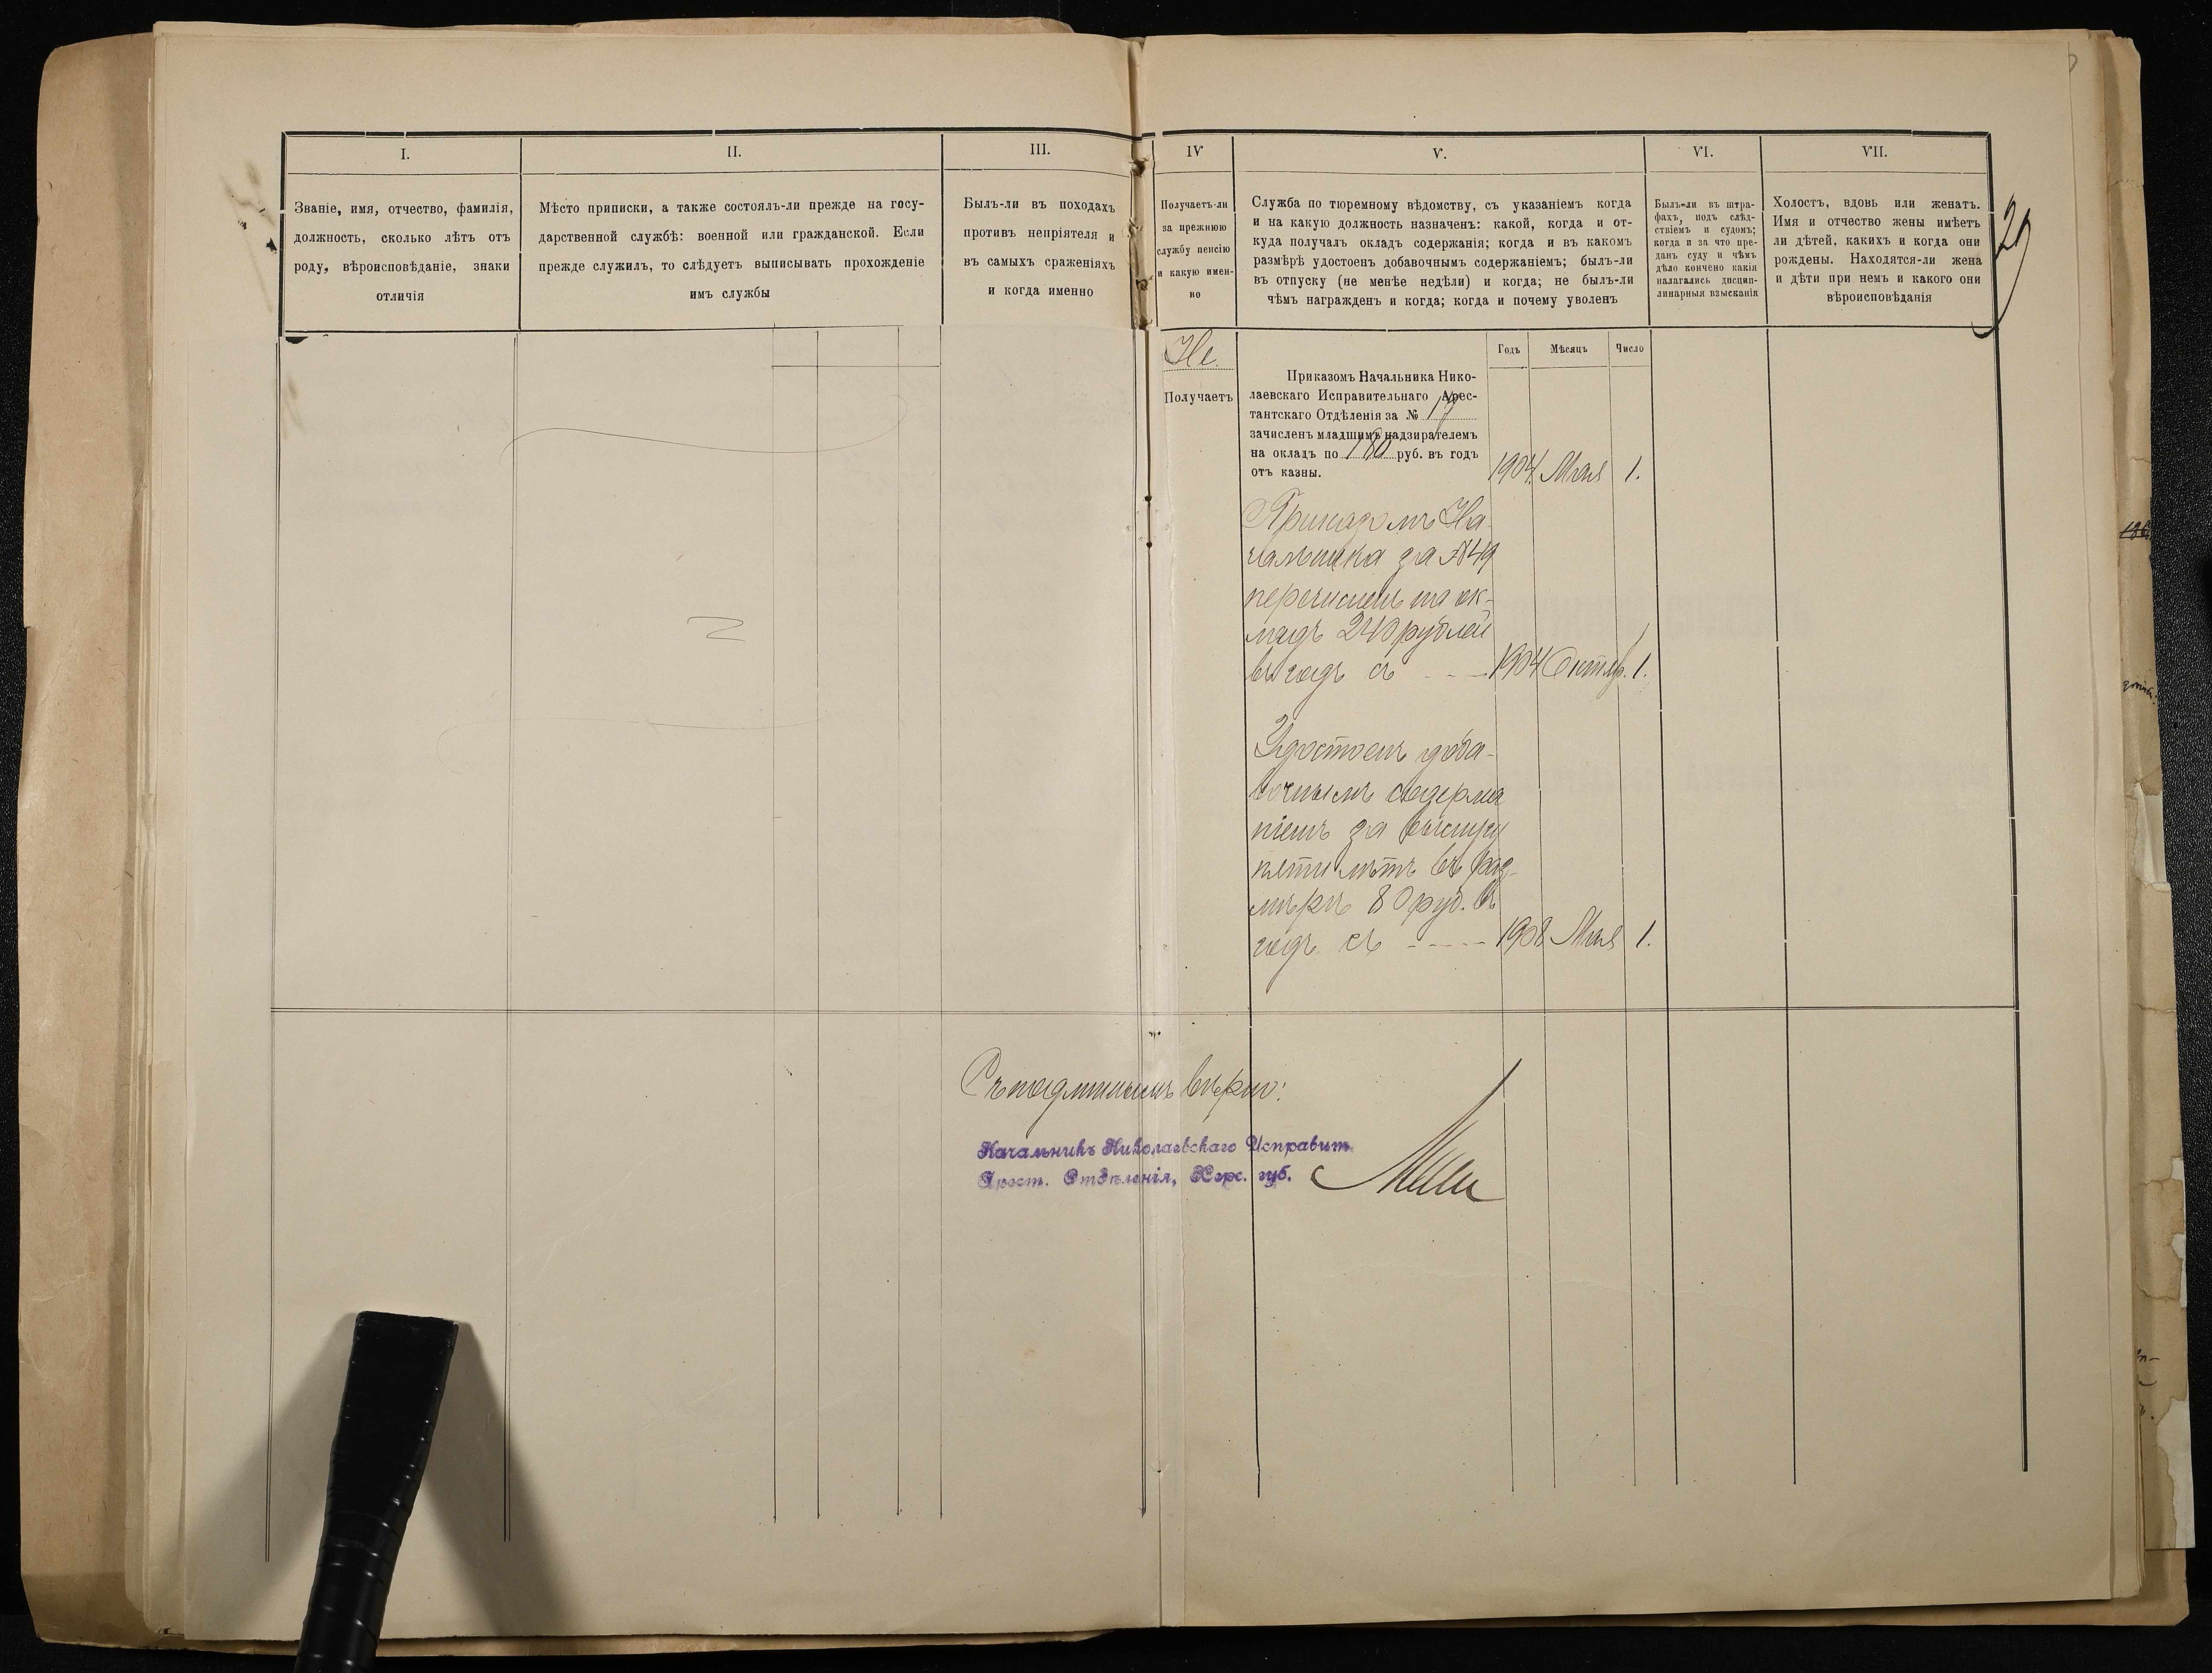 I.
Званіе, имя, отчество, фамилія,
должность, сколько лѣтъ отъ
роду, вѣроисповѣданіе, знаки
отличія
II.
Мѣсто приписки, а также состоялъ-ли прежде на госу-
дарственной службѣ: военной или гражданской. Если
прежде служилъ, то слѣдуетъ выписывать прохожденіе
имъ службы
III.
Былъ-ли въ походахъ
противъ непріятеля и
въ самыхъ сраженіяхъ
и когда именно
IV
Получаетъ-ли
за прежнюю
службу пенсію
и какую имен-
но
V.
Служба по тюремному вѣдомству, съ указаніемъ когда
и на какую должность назначенъ: какой, когда и от-
куда получалъ окладъ содержанія; когда и въ какомъ
размѣрѣ удостоенъ добавочнымъ содержаніемъ; былъ-ли
въ отпуску (не менѣе недѣли) и когда; не былъ-ли
чѣмъ награжденъ и когда; когда и почему уволенъ
VI.
Былъ-ли въ штра-
фахъ, подъ слѣд-
ствіемъ и судомъ;
когда и за что пре-
данъ суду и чѣмъ
дѣло кончено какія
налагались дисцип-
линарныя взысканія
VII.
Холостъ, вдовъ или женатъ.
Имя и отчество жены имѣетъ
ли дѣтей, какихъ и когда они
рождены. Находятся-ли жена
и дѣти при немъ и какого они
вѣроисповѣданія
29
Не
Получаетъ
Годъ Мѣсяцъ Число
Приказомъ Начальника Нико-
лаевскаго Исправительнаго Арес-
тантскаго Отдѣленія за №
зачисленъ младшимъ надзирателемъ
на окладъ по 180 руб. въ годъ
отъ казны. 1904 Мая 1.
Приказомъ На-
чальника за №49
перечисленъ на ок-
ладъ 240 рублей
въ годъ съ 1904 Октяб. 1.
Удостоенъ доба-
вочнымъ содержа
ніемъ за выслугу
пяти лѣтъ въ раз-
мѣрѣ 80 руб. въ
годъ съ 1908 Мая 1.
Съ подлиннымъ вѣрно:
Начальникъ Николаевскаго Исправит.
Арест. Отдѣленія, Херс. губ.